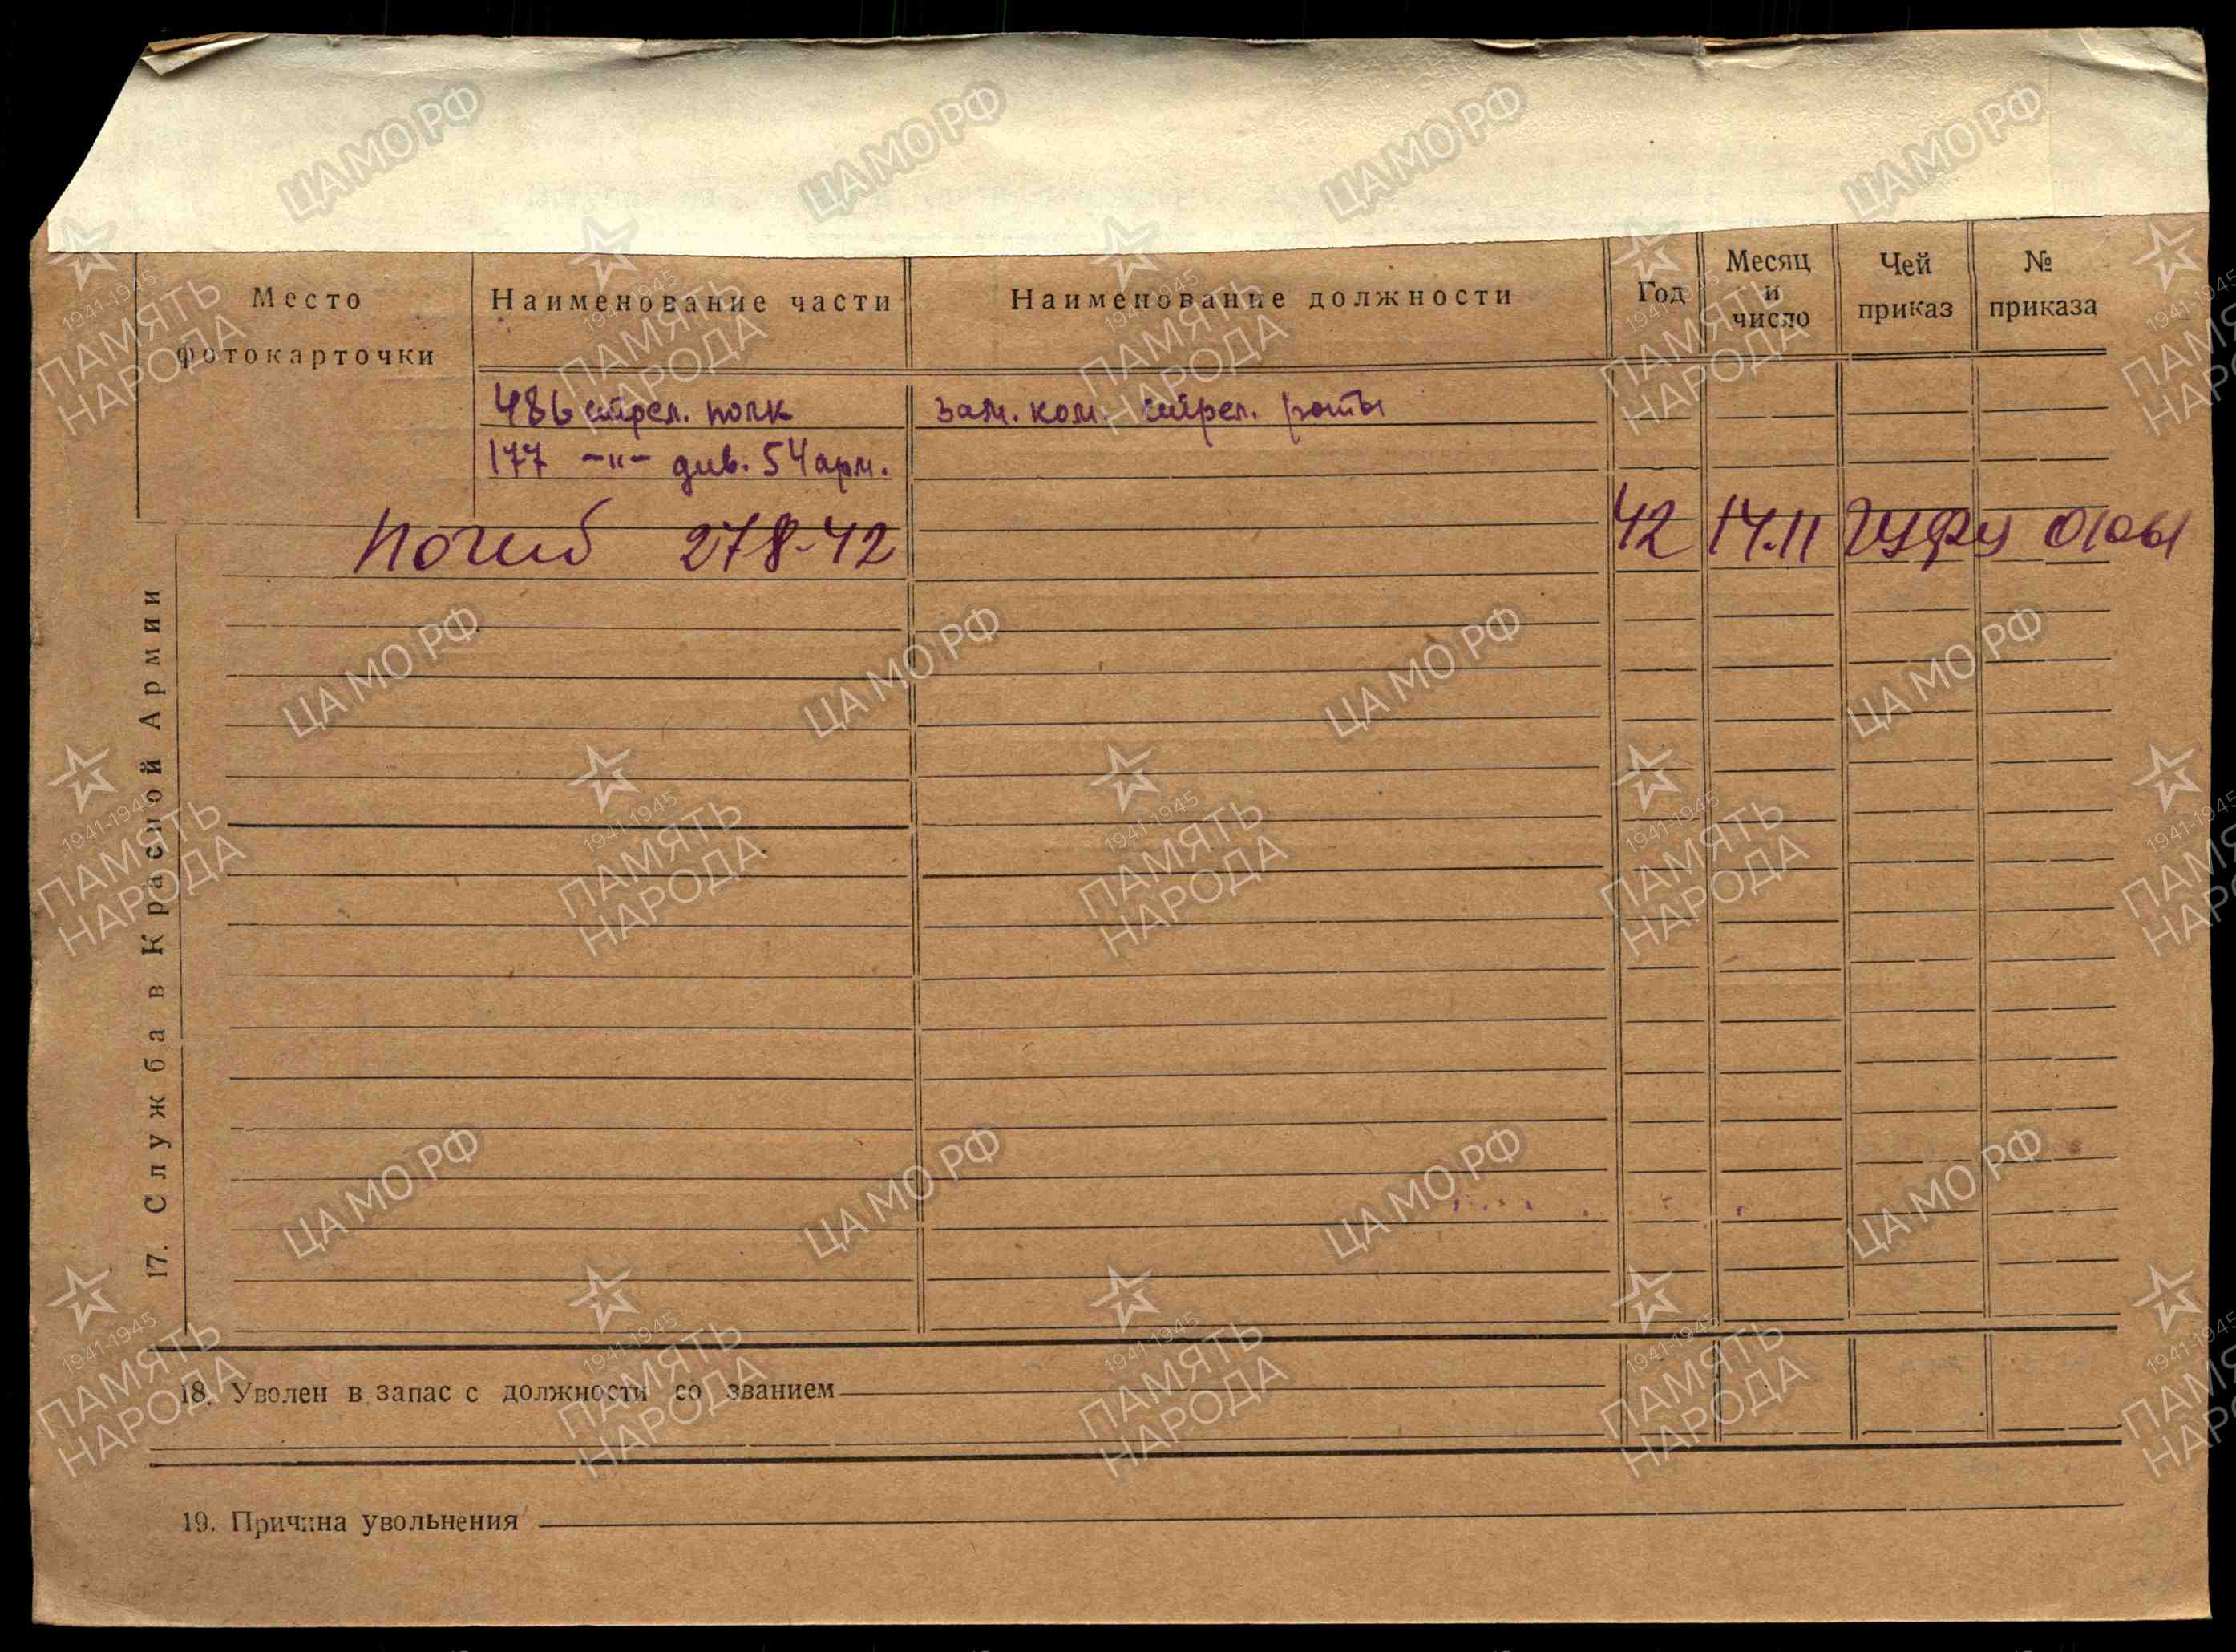 Место
фотокарточки
Наименование части
Наименование должности
Год
Месяц
и
число
Чей
приказ
№
приказа
486 стрел. полк
зам. ком. стрел. роты
177 -"- див. 54 арм.
погиб 27.8.42
42 14.11 ГУФУ
17. Служба в Красной Армии
18. Уволен в запас с должности со званием
19. Причина увольнения
ЦАМО РФ
1941-1945
ПАМЯТЬ
НАРОДА